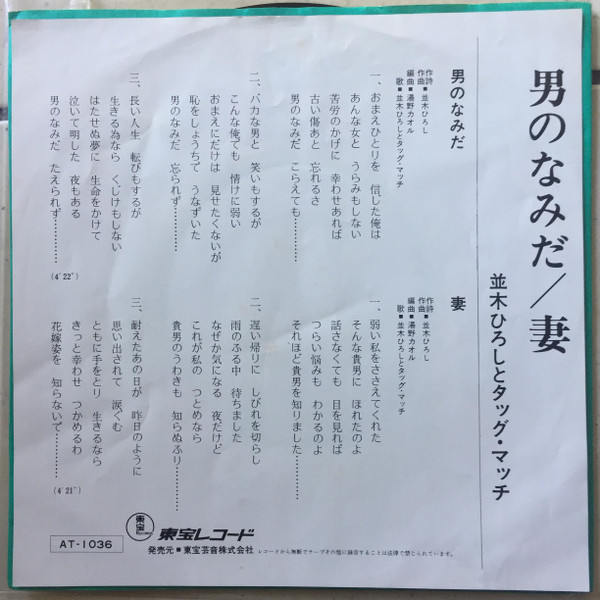 男のなみだ/妻
並木ひろしとタッグ・マッチ
男のなみだ
作詩
作曲■並木ひろし
編曲■湯野カオル
歌■並木ひろしとタッグ・マッチ
一、おまえひとりを　信じた俺は
あんな女と　うらみもしない
苦労のかげに　幸わせあれば
古い傷あと　忘れるさ
男のなみだ　こらえても………
二、バカな男と　笑いもするが
こんな俺でも　情けに弱い
おまえにだけは　見せたくないが
恥をしょうちで　うなずいた
男のなみだ　忘られず…………
三、長い人生　転びもするが
生きる為なら　くじけもしない
はたせぬ夢に　生命をかけて
泣いて明した　夜もある
男のなみだ　たえられず…………
(4′22″)
妻
作詩
作曲■並木ひろし
編曲■湯野カオル
歌■並木ひろしとタッグ・マッチ
一、弱い私をささえてくれた
そんな貴男に　ほれたのよ
話さなくても　目を見れば
つらい悩みも　わかるのよ
それほど貴男を知りました………
二、遅い帰りに　しびれを切らし
雨のふる中　待ちました
なぜか気になる　夜だけど
これが私の　つとめなら
貴男のうわきも　知らぬふり………
三、耐えたあの日が　昨日のように
思い出されて　涙ぐむ
ともに手をとり　生きるなら
きっと幸わせ　つかめるわ
花嫁姿を　知らないで…………
(4′21″)
AT-1036
東宝
Records
東宝レコード
発売元■東宝芸音株式会社
レコードから無断でテープその他に録音することは法律で禁じられています。